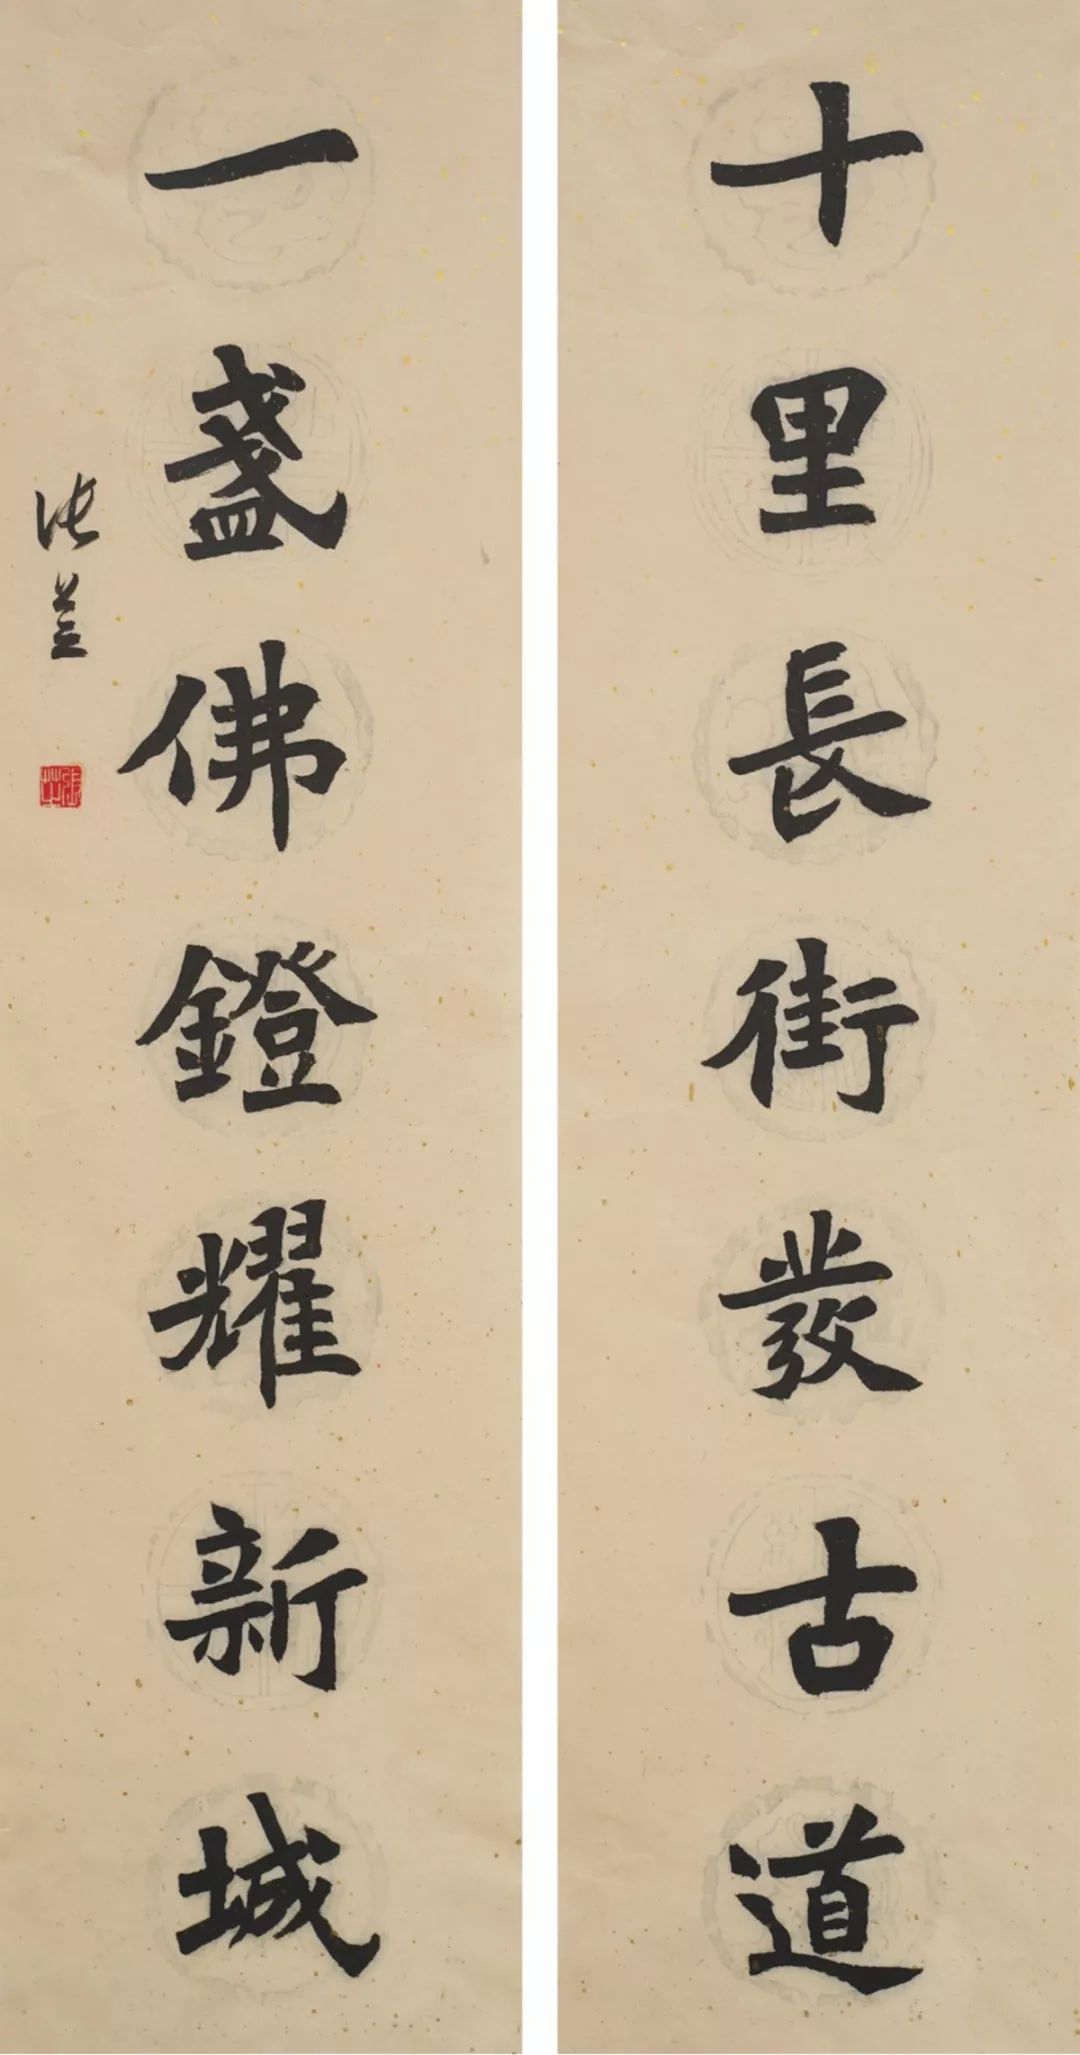 十里長街發古道
一盞佛鐙耀新城